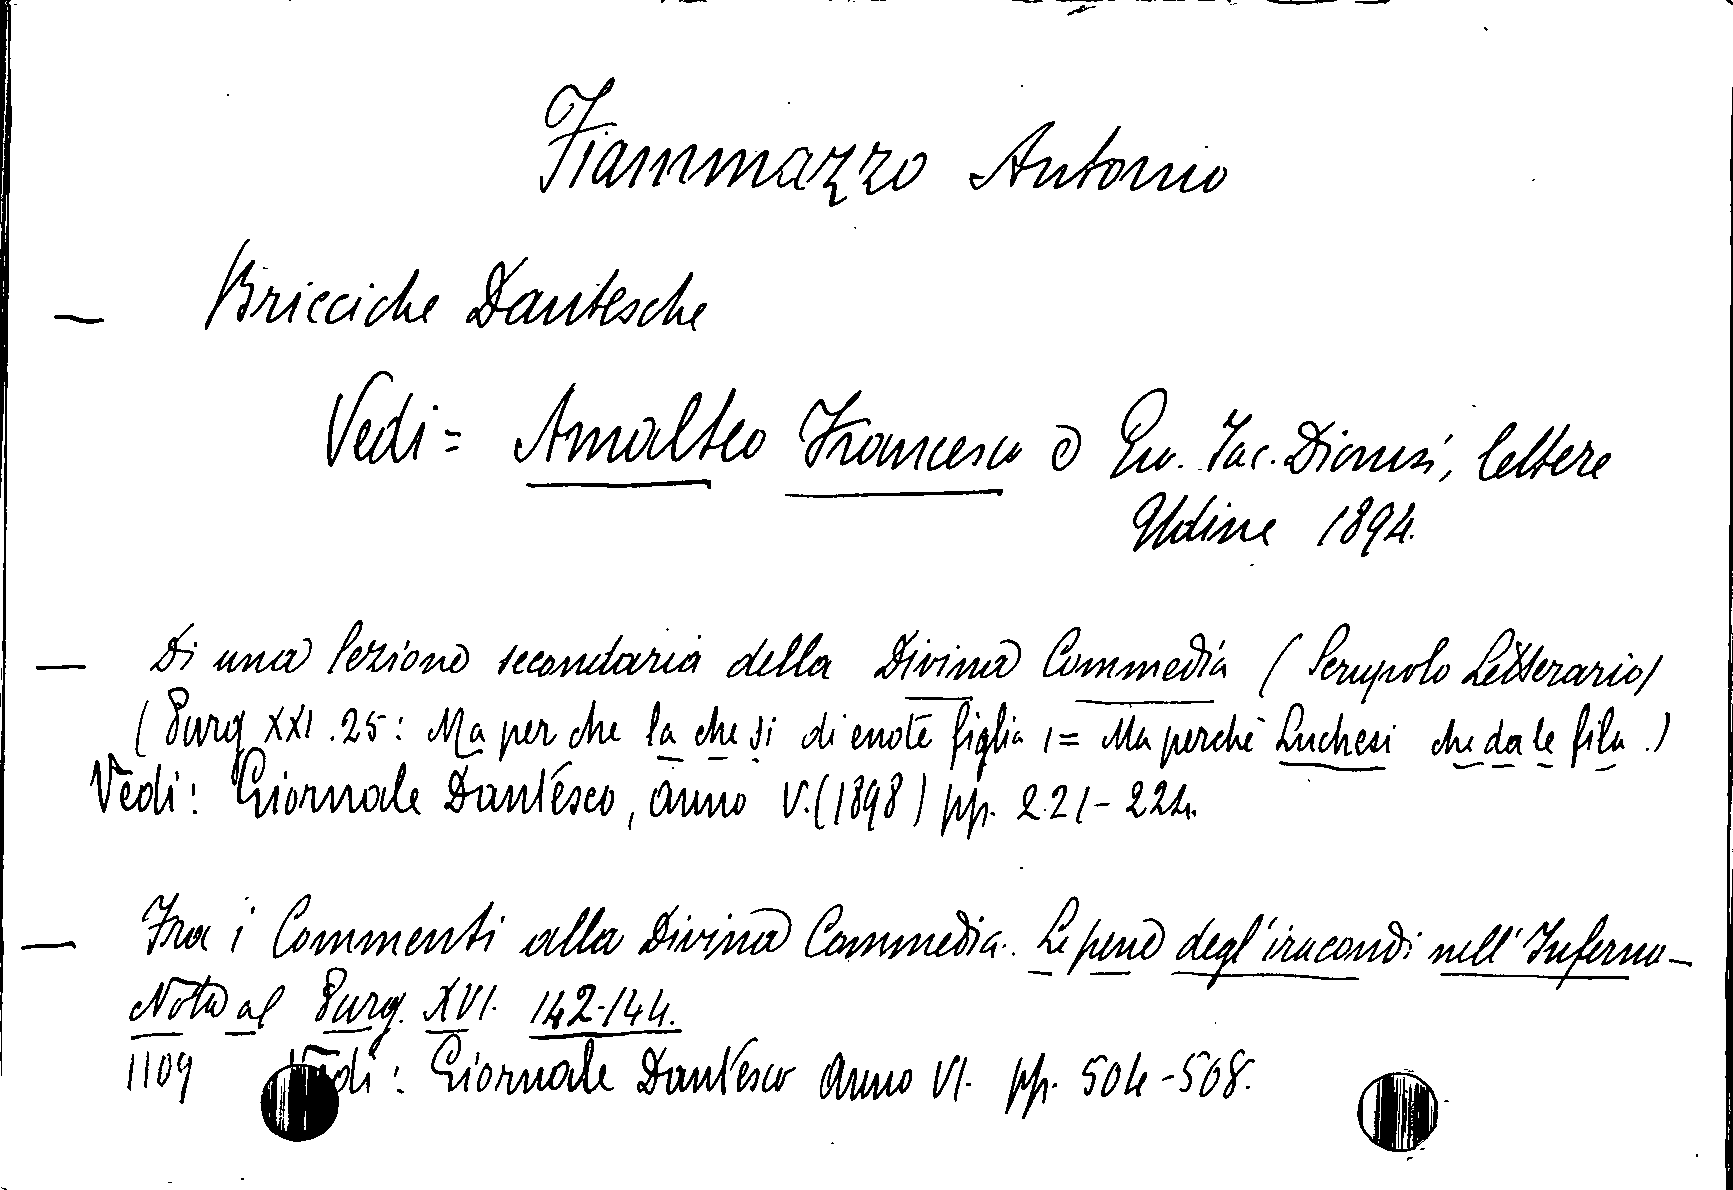 Fiammazzo Antonio
— Bricciche Dantesche
Vedi = Amalteo Francesco e Gio. Iac. Dionisi, lettere
Udine 1894.
— Di una lezione secondaria della Divina Commedia (Scrupolo Letterario)
(Purg XXI. 25: Ma per che la che si di e note figlia, = Ma perchè Luchesi che da le fila.)
Vedi: Giornale Dantesco, anno V. (1898) pp. 221-224.
— Fra i Commenti alla Divina Commedia. Le pene degl'iracondi nell'Inferno -
Nota al Purg. XVI. 142-144.
1109 Vedi: Giornale Dantesco Anno VI. pp. 504-508.